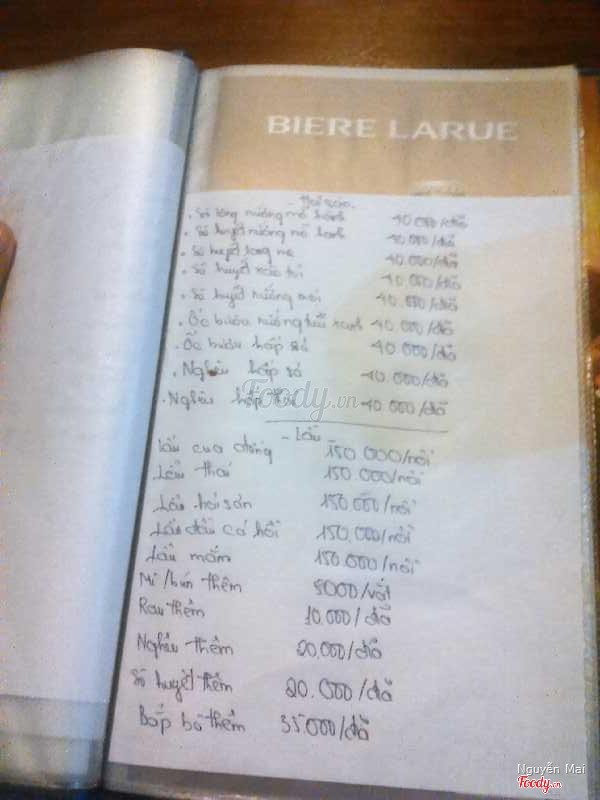 BIERE LARUE
- Hải sản -
. Sò lông nướng mỡ hành 40.000/đĩa
. Sò huyết nướng mỡ hành 40.000/đĩa
. Sò huyết rang me 40.000/đĩa
. Sò huyết xào tỏi 40.000/đĩa
. Sò huyết nướng mọi 40.000/đĩa
. Ốc bươu nướng tiêu xanh 40.000/đĩa
. Ốc bươu hấp sả 40.000/đĩa
. Nghêu hấp sả 40.000/đĩa
. Nghêu hấp 40.000/đĩa
- Lẩu
Lẩu cua đồng 150.000/nồi
Lẩu thái 150.000/nồi
Lẩu hải sản 150.000/nồi
Lẩu đầu cá hồi 150.000/nồi
Lẩu mắm 150.000/nồi
Mì/bún thêm 5000/vắt
Rau thêm 10.000/đĩa
Nghêu thêm 20.000/đĩa
Sò huyết thêm 20.000/đĩa
Bắp bò thêm 35.000/đĩa
Foody.vn
Nguyễn Mai
Foody.vn